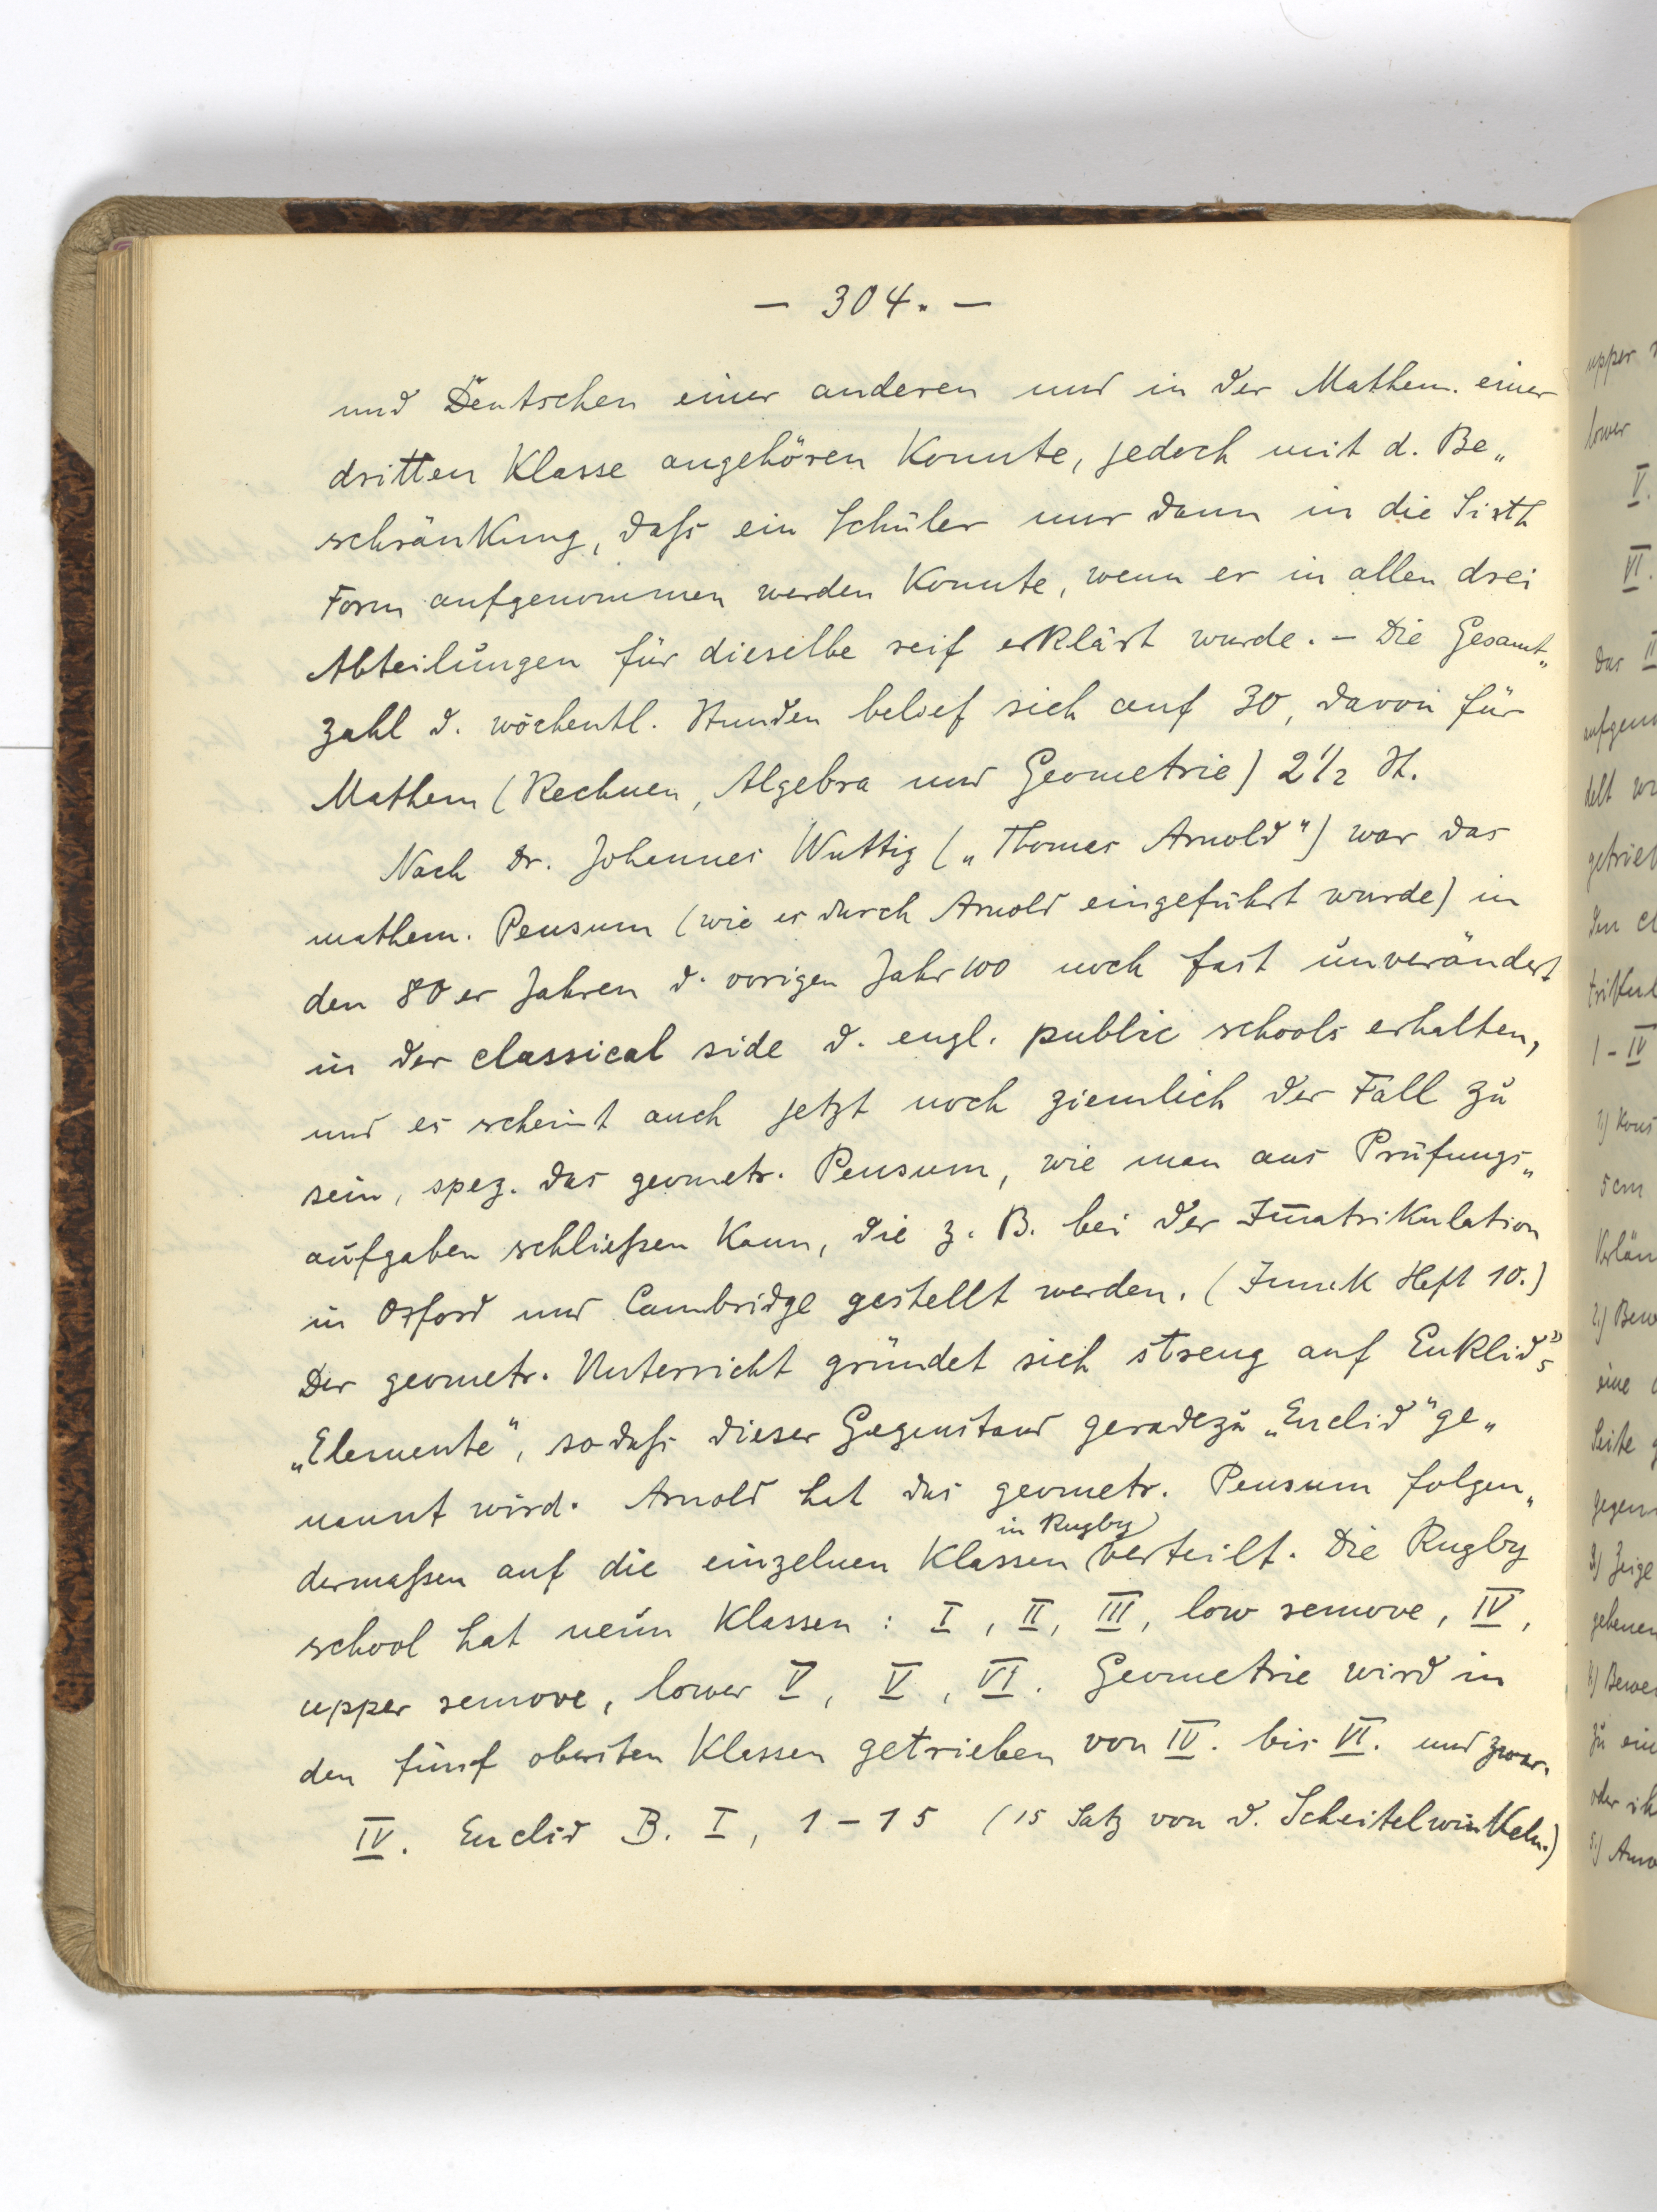 — 304. —
und Deutschen einer anderen und in der Mathem. einer
dritten Klasse angehören konnte, jedoch mit d. Be„
schränkung, daſs ein Schüler nur dann in die Sixth
Form aufgenommen werden konnte, wenn er in allen drei
Abteilungen für dieselbe reif erklärt wurde. – Die Gesamt„
zahl d. wöchentl. Stunden belief sich auf 30, davon für
Mathem (Rechnen, Algebra und Geometrie) 2 1/2 St.
Nach Dr. Johannes Wuttig („Thomas Arnold") war das
mathem. Pensum (wie es durch Arnold eingeführt wurde) in
den 80er Jahren d. vorigen Jahr100 noch fast unverändert
in der classical side d. engl. public schools erhalten,
und es scheint auch jetzt noch ziemlich der Fall zu
sein, spez. das geometr. Pensum, wie man aus Prüfungs„
aufgaben schlieſsen kann, die z. B. bei der Im̄atrikulation
in Oxford und Cambridge gestellt werden. (Junck Heft 10.)
Der geometr. Unterricht gründet sich streng auf Euklid's
„Elemente", sodaſs dieser Gegenstand geradezu „Euclid" ge„
nannt wird. Arnold hat das geometr. Pensum folgen„
in Rugby
dermaſsen auf die einzelnen Klassen verteilt. Die Rugby
school hat neun Klassen: I, II, III, low remove, IV,
upper remove, lower V, V, VI. Geometrie wird in
den fünf obersten Klassen getrieben von IV. bis VI. und zwar.
IV. Euclid B. I, 1–15 (15 Satz von d. Scheitelwinkeln.)
upper
lower
V.
VI.
Das II
delt
1-IV
5 cm
2) Bew
eine
Seite
gegen
3) Zeige
gebenen
4) Bewei
zu ein